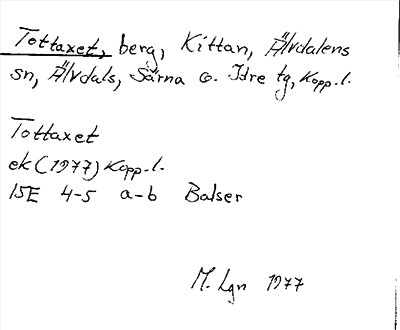 Tottaxet, berg, Kittan, Älvdalens
sn, Älvdals, Särna o. Idre tg, Kopp.l.
Tottaxet
ek (1977) Kopp.l.
15E 4-5 a-b Balser
M. Lgn 1977